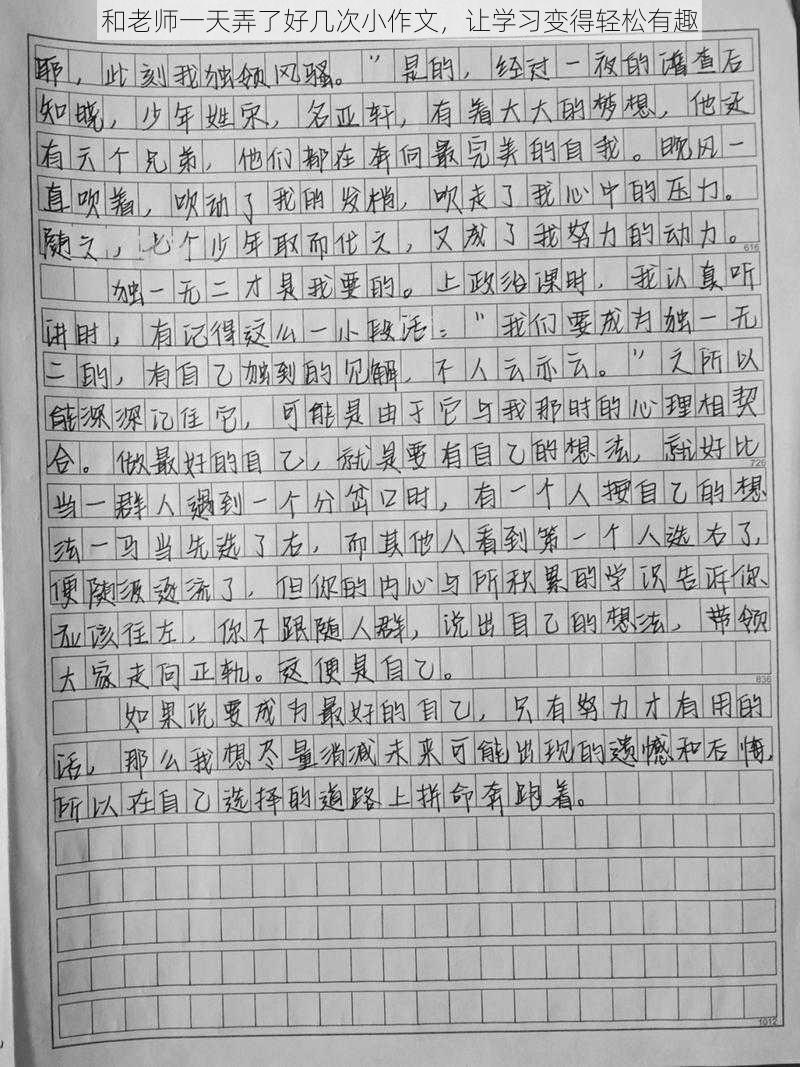 和老师一天弄了好几次小作文，让学习变得轻松有趣
耶，此刻我独领风骚。”是的，经过一夜的潜查后
知晓，少年姓宋，名亚轩，有着大大的梦想，他还
有六个兄弟，他们都在奔向最完美的自我。晚风一
直吹着，吹动了我的发梢，吹走了我心中的压力。
随之，七个少年取而代之，又成了我努力的动力。
616
独一无二才是我要的。上政治课时，我认真听
讲时，有记得这么一小段话：“我们要成为独一无
二的，有自己独到的见解，不人云亦云。”之所以
能深深记住它，可能是由于它与我那时的心理相契
合。做最好的自己，就是要有自己的想法，就好比
726
当一群人遇到一个分岔口时，有一个人按自己的想
法一马当先选了右，而其他人看到第一个人选右了，
便随波逐流了，但你的内心与所积累的学识告诉你
应该往左，你不跟随人群，说出自己的想法，带领
大家走向正轨。这便是自己。
836
如果说要成为最好的自己，只有努力才有用的
话，那么我想尽量消减未来可能出现的遗憾和后悔，
所以在自己选择的道路上拼命奔跑着。
1012